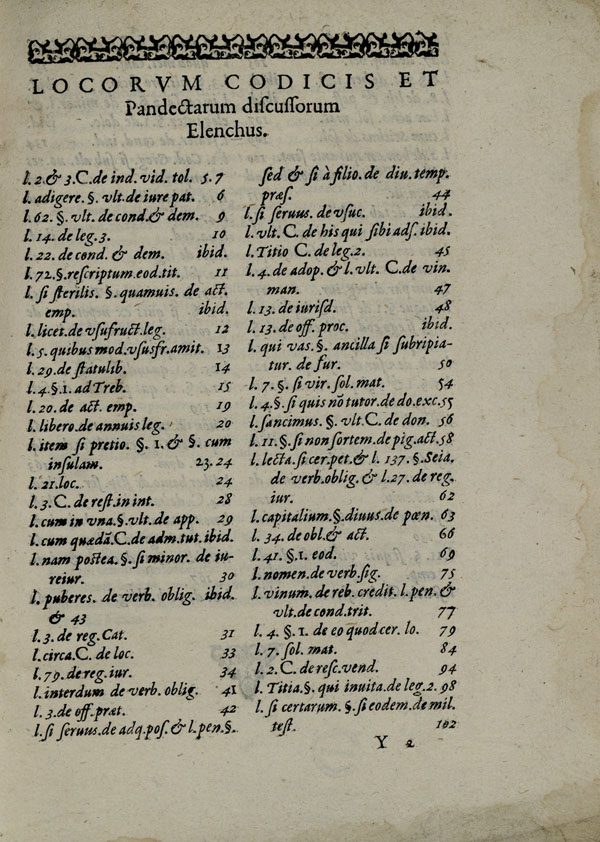 LOCORVM CODICIS ET
Pandectarum discussorum
Elenchus.
l. 2. & 3. C. de ind. vid. tol. 5. 7
l. adigere. §. vlt. de iure pat. 6
l. 62. §. vlt. de cond. & dem. 9
l. 14. de leg. 3. 10
l. 22. de cond. & dem. ibid.
l. 72. §. rescriptum. eod. tit. 11
l. si sterilis. §. quamuis. de act.
emp. ibid.
l. licet. de vsufruct. leg. 12
l. 5. quibus mod. vsusfr. amit. 13
l. 29. de statulib. 14
l. 4. §. 1. ad Treb. 15
l. 20. de act. emp. 19
l. libero. de annuis leg. 20
l. item si pretio. §. 1. & §. cum
insulam. 23. 24
l. 21. loc. 24
l. 3. C. de rest. in int. 28
l. cum in vna. §. vlt. de app. 29
l. cum quædã. C. de adm. tut. ibid.
l. nam postea. §. si minor. de iu-
reiur. 30
l. puberes. de verb. oblig. ibid.
& 43
l. 3. de reg. Cat. 31
l. circa. C. de loc. 33
l. 79. de reg. iur. 34
l. interdum de verb. oblig. 41
l. 3. de off. præt. 42
l. si seruus. de adq. pos. & l. pen. §.
sed & si à filio. de diu. temp.
præs. 44
l. si seruus. de vsuc. ibid.
l. vlt. C. de his qui sibi ads. ibid.
l. Titio C. de leg. 2. 45
l. 4. de adop. & l. vlt. C. de vin.
man. 47
l. 13. de iurisd. 48
l. 13. de off. proc. ibid.
l. qui vas. §. ancilla si subripia-
tur. de fur. 50
l. 7. §. si vir. sol. mat. 54
l. 4. §. si quis nõ tutor. de do. exc. 55
l. sancimus. §. vlt. C. de don. 56
l. 11. §. si non sortem. de pig. act. 58
l. lecta. si cer. pet. & l. 137. §. Seia.
de verb. oblig. & l. 27. de reg.
iur. 62
l. capitalium. §. diuus. de pœn. 63
l. 34. de obl. & act. 66
l. 41. §. 1. eod. 69
l. nomen. de verb. sig. 75
l. vinum. de reb. credit. l. pen. &
vlt. de cond. trit. 77
l. 4. §. 1. de eo quod cer. lo. 79
l. 7. sol. mat. 84
l. 2. C. de resc. vend. 94
l. Titia. §. qui inuita. de leg. 2. 98
l. si certarum. §. si eodem. de mil.
test. 102
Y 2